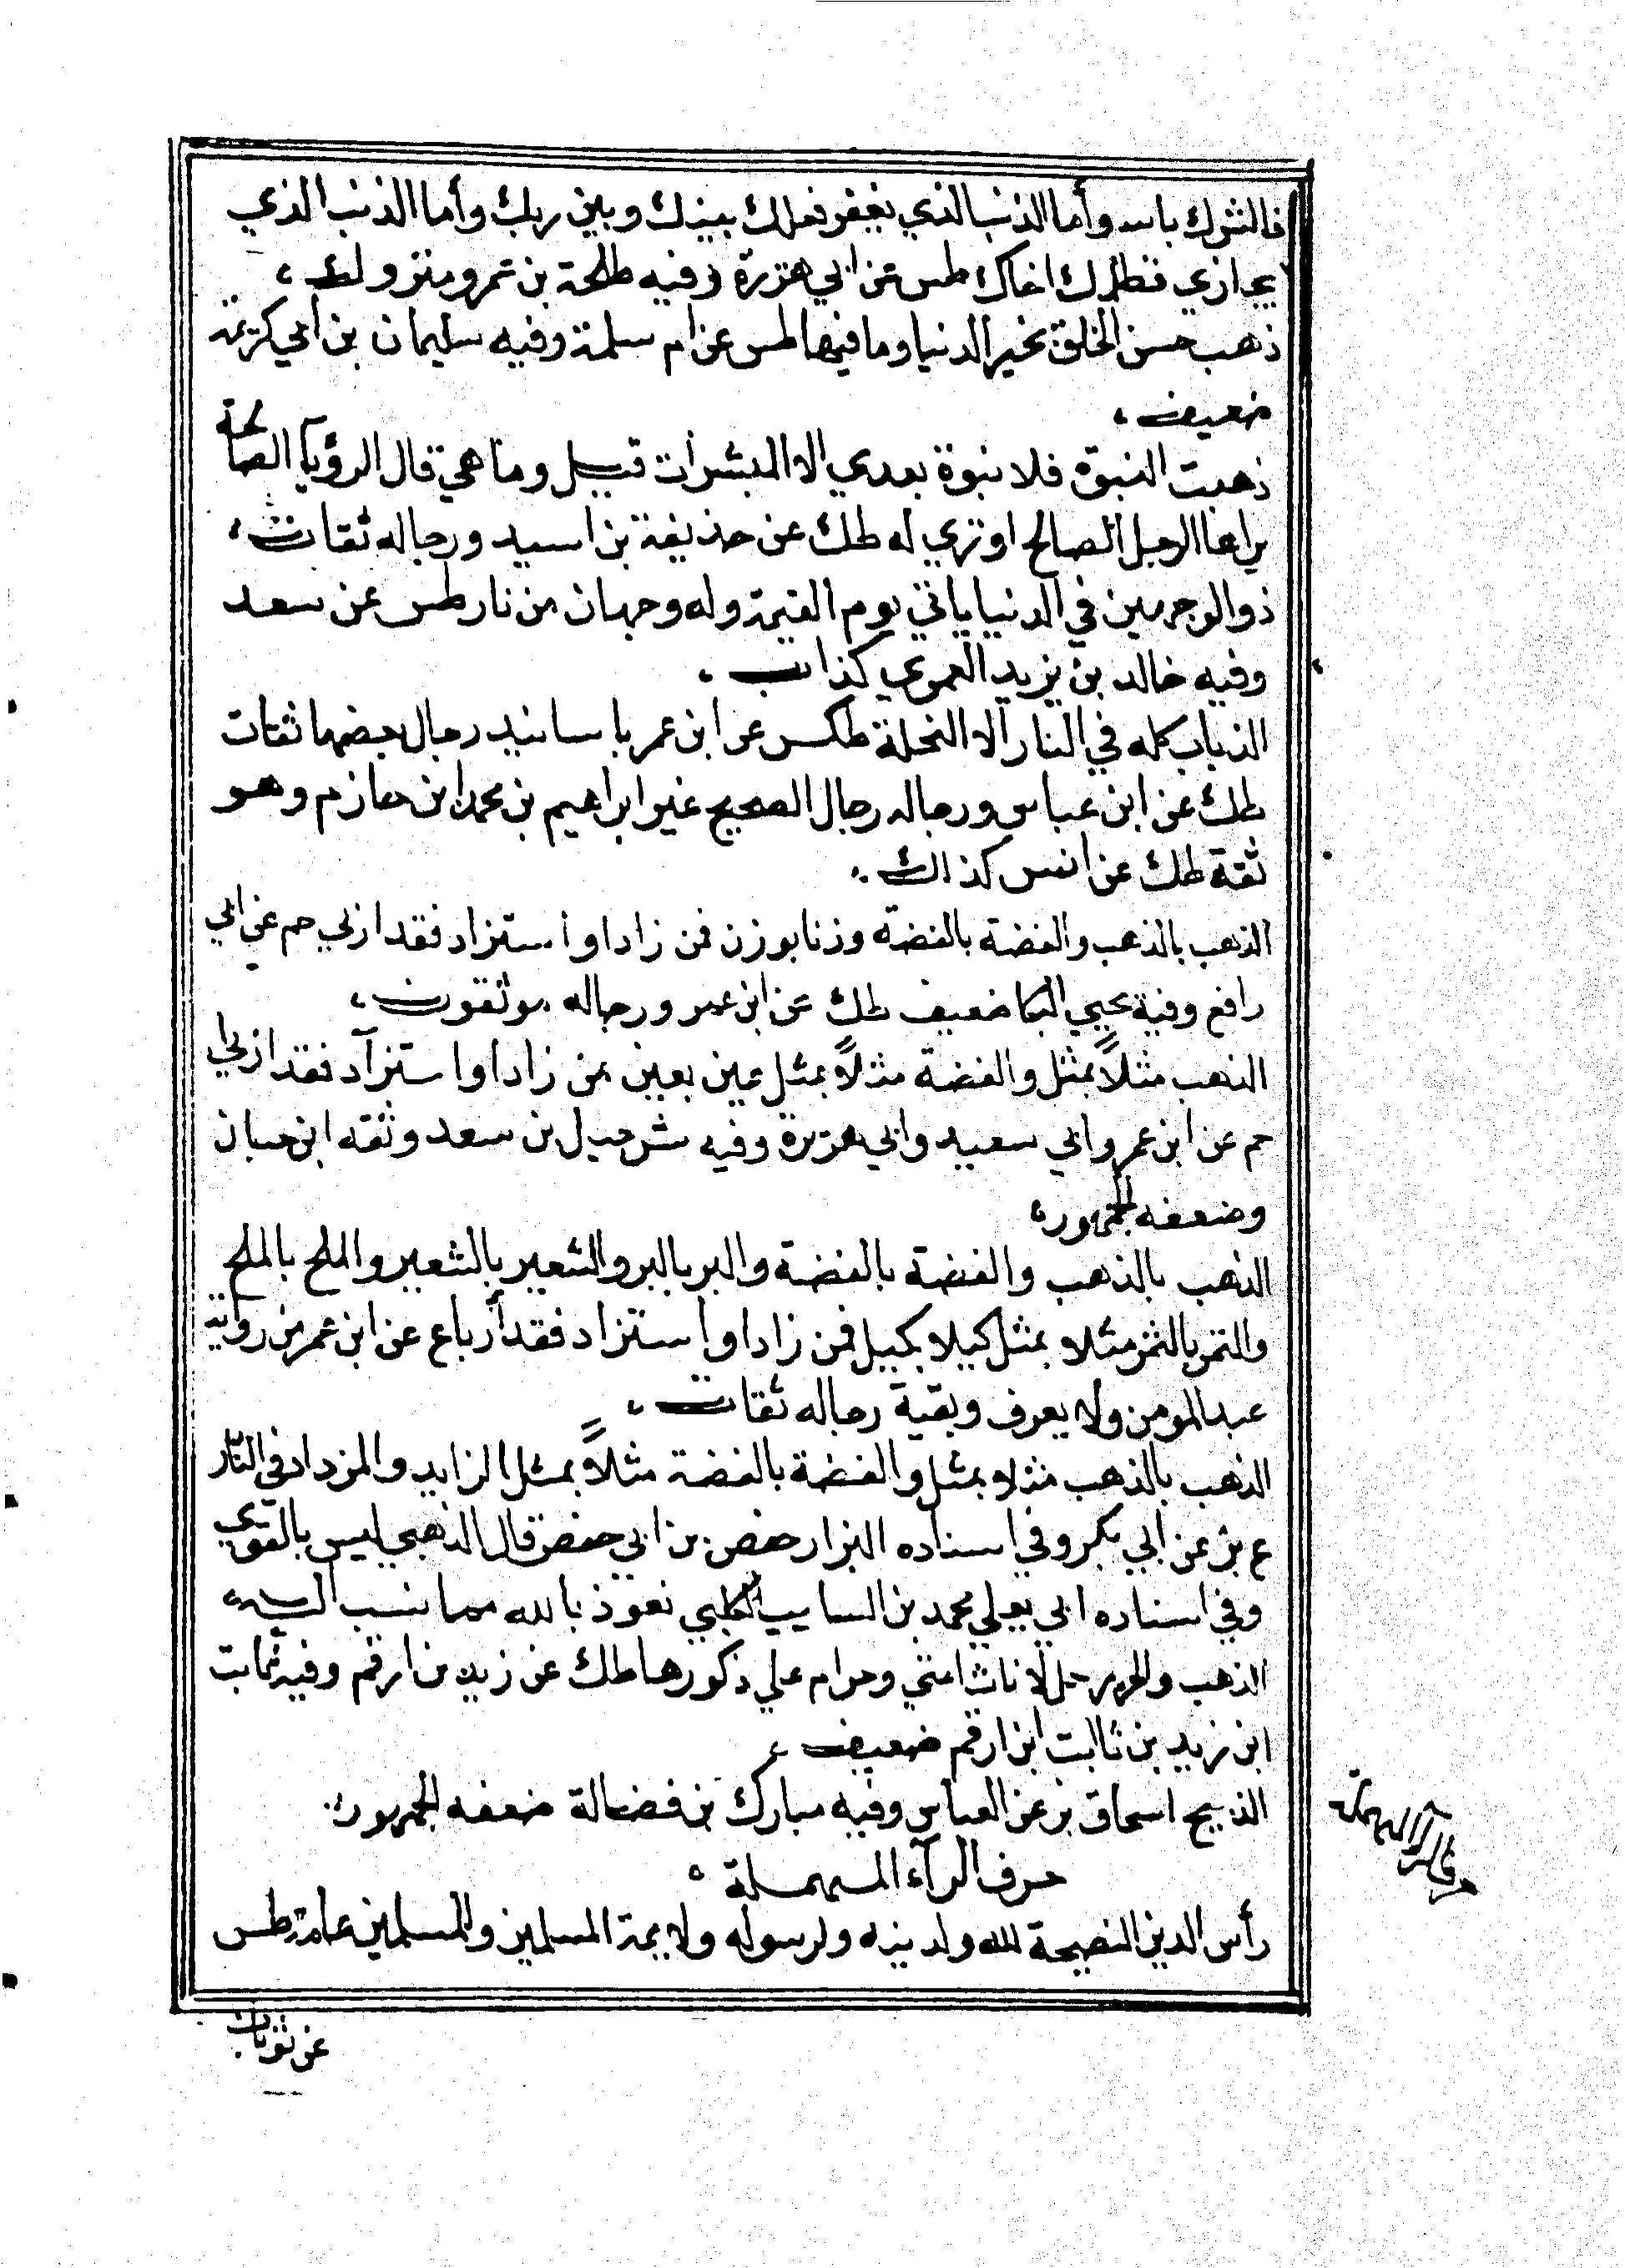 فالشرك بالله وأما الذنب الذي يغفر فعملك بينك وبين ربك وأما الذنب الذي
يجازي فظلمك اخاك طس عن ابي هريرة وفيه طلحة بن عمرو متروك
ذهب حسن الخلق بخير الدنيا وما فيها طس عن ام سلمة وفيه سليمان بن أبي كريمة
ضعيف
ذهبت النبوة فلا نبوة بعدي الا المبشرات قيل وما هي قال الرؤيا الصالحة
يراها الرجل الصالح او تري له طك عن حذيفة بن اسيد ورجاله ثقات
ذو الوجهين في الدنيا ياتي يوم القيمة وله وجهان من نار طس عن سعد
وفيه خالد بن يزيد العمري كذاب
الذباب كله في النار الا النحلة طكس عن ابن عمر باسانيد رجال بعضها ثقات
طك عن ابن عباس ورجاله رجال الصحيح غير ابراهيم بن محمد ابن حازم وهو
ثقة طك عن انس كذالك
الذهب بالذهب والفضة بالفضة وزنا بوزن فمن زاد او استزاد فقد اربي حم عن ابي
رافع وفيه يحيي البكا ضعيف طك عن ابن عمر ورجاله موثقون
الذهب مثلاً بمثل والفضة مثلاً بمثل عين بعين فمن زاد او استزاد فقد اربي
حم عن ابن عمر وابي سعيد وابي هريرة وفيه شرحبيل بن سعد وثقه ابن حبان
وضعفه الجمهور
الذهب بالذهب والفضة بالفضة والبر بالبر والشعير بالشعير والملح بالملح
والتمر بالتمر مثلا بمثل كيلا بكيل فمن زاد او استزاد فقد أربا ع عن ابن عمر من رواية
عبد المومن ولا يعرف وبقية رجاله ثقات
الذهب بالذهب مثلا بمثل والفضة بالفضة مثلاً بمثل الزايد والمزداد في النار
ع بز عن ابي بكر وفي اسناده البزار حفص بن ابي حفص قال الذهبي ليس بالقوي
وفي اسناده ابي يعلي محمد بن السايب الكلبي نعوذ بالله مما نسب اليه
الذهب والحرير حل لاناث امتي وحرام علي ذكورها طك عن زيد بن ارقم وفيه ثابت
ابن زيد بن ثابت ابن ارقم ضعيف
الذبيح اسحاق بز عن العباس وفيه مبارك بن فضالة ضعفه الجمهور
حرف الرآء المهملة
رأس الدين النصيحة لله ولدينه ولرسوله ولايمة المسلمين والمسلمين عامة طس
عن ثوبان
حرف الرآ المهملة